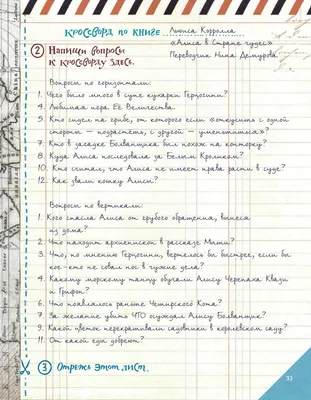 Кроссворд по книге Льюиса Кэрролла
«Алиса в Стране чудес»
Переводчик Нина Демурова
2 Напиши вопросы
к кроссворду здесь.
Вопросы по горизонтали:
1. Чего было много в супе кухарки Герцогини?
4. Любимая игра Её Величества.
6. Кто сидел на грибе, от которого если «откусить с одной
стороны — подрастёшь, с другой — уменьшишься»?
7. Кто в загадке Болванщика был похож на конторку?
8. Куда Алиса последовала за Белым Кроликом?
10. Кто считал, что Алиса не имеет права расти в суде?
12. Как звали кошку Алисы?
Вопросы по вертикали:
1. Кого спасла Алиса от грубого обращения, вынеся
из дома?
2. Что находит архиепископ в рассказе Мыши?
3. Что, по мнению Герцогини, вертелось бы быстрее, если бы
кое-кто не совал нос в чужие дела?
4. Какому морскому танцу обучали Алису Черепаха Квази
и Грифон?
6. Что появлялось раньше Чеширского Кота?
7. За желание убить ЧТО осуждал Алису Болванщик?
9. Какой цветок перекрашивали садовники в королевском саду?
11. От какой еды добреют?
3 Отрежь этот лист.
33